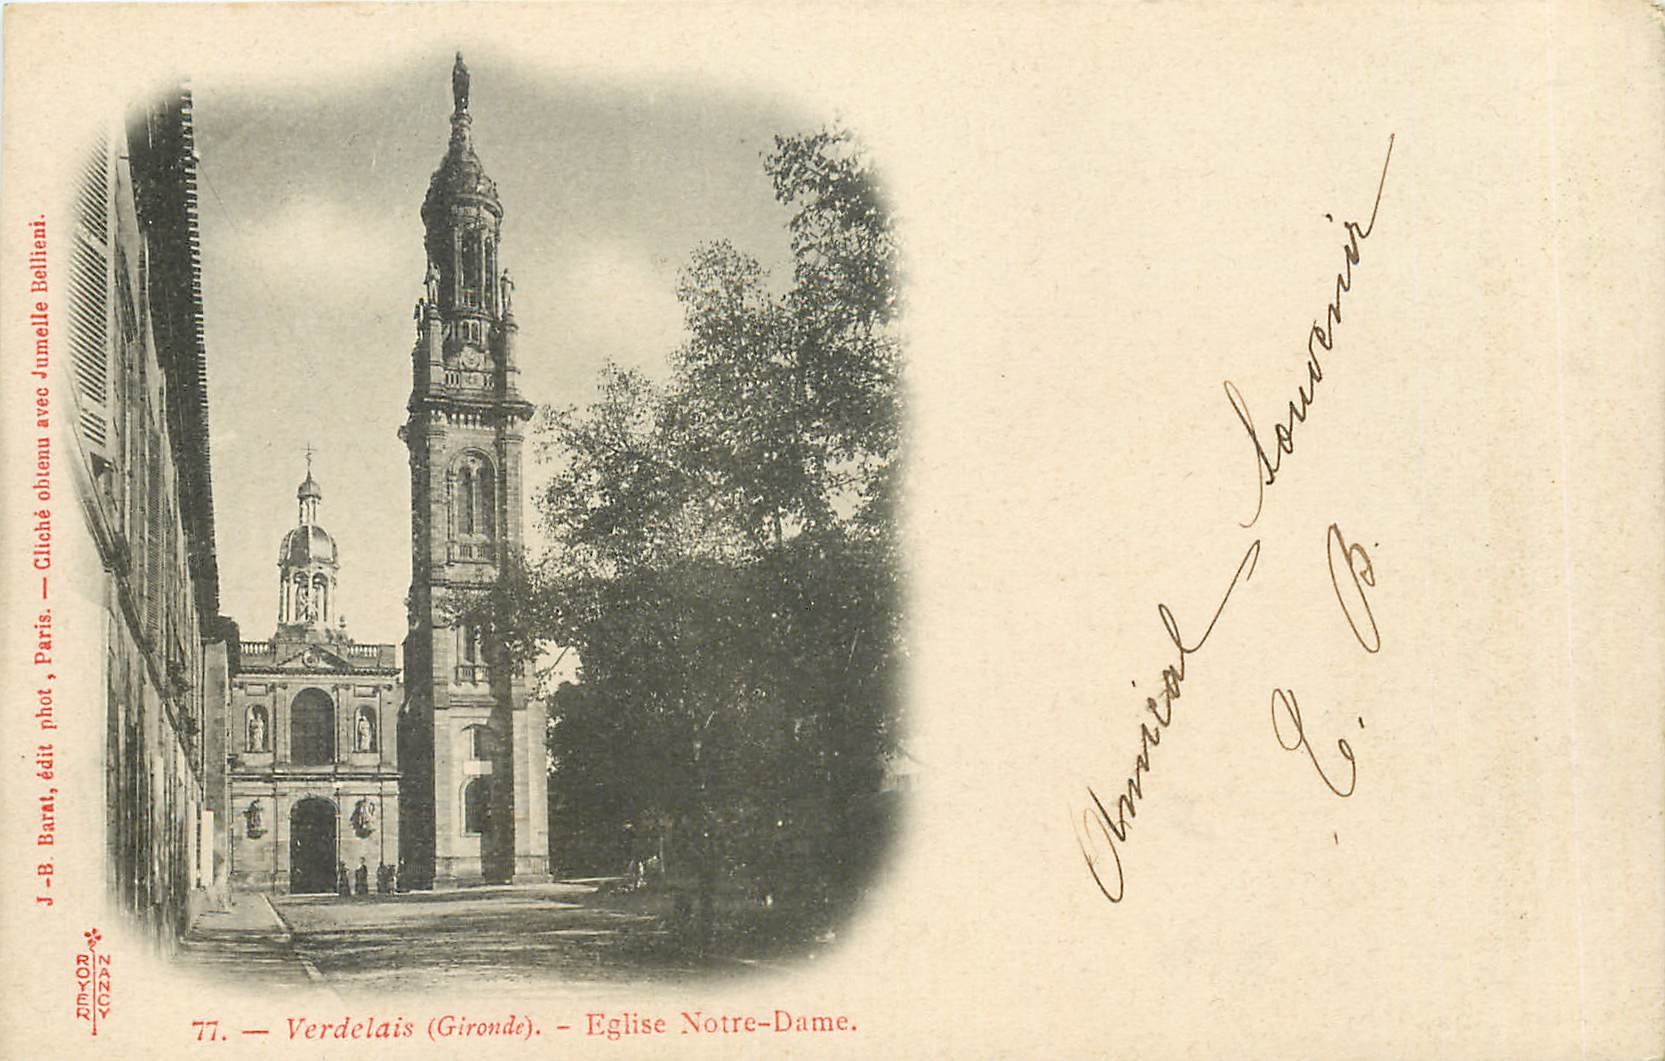 J-B. Barat, édit phot, Paris. — Cliché obtenu avec Jumelle Bellieni.
ROYER
NANCY
77. — Verdelais (Gironde). - Eglise Notre-Dame.
Amical Souvenir
E. B.